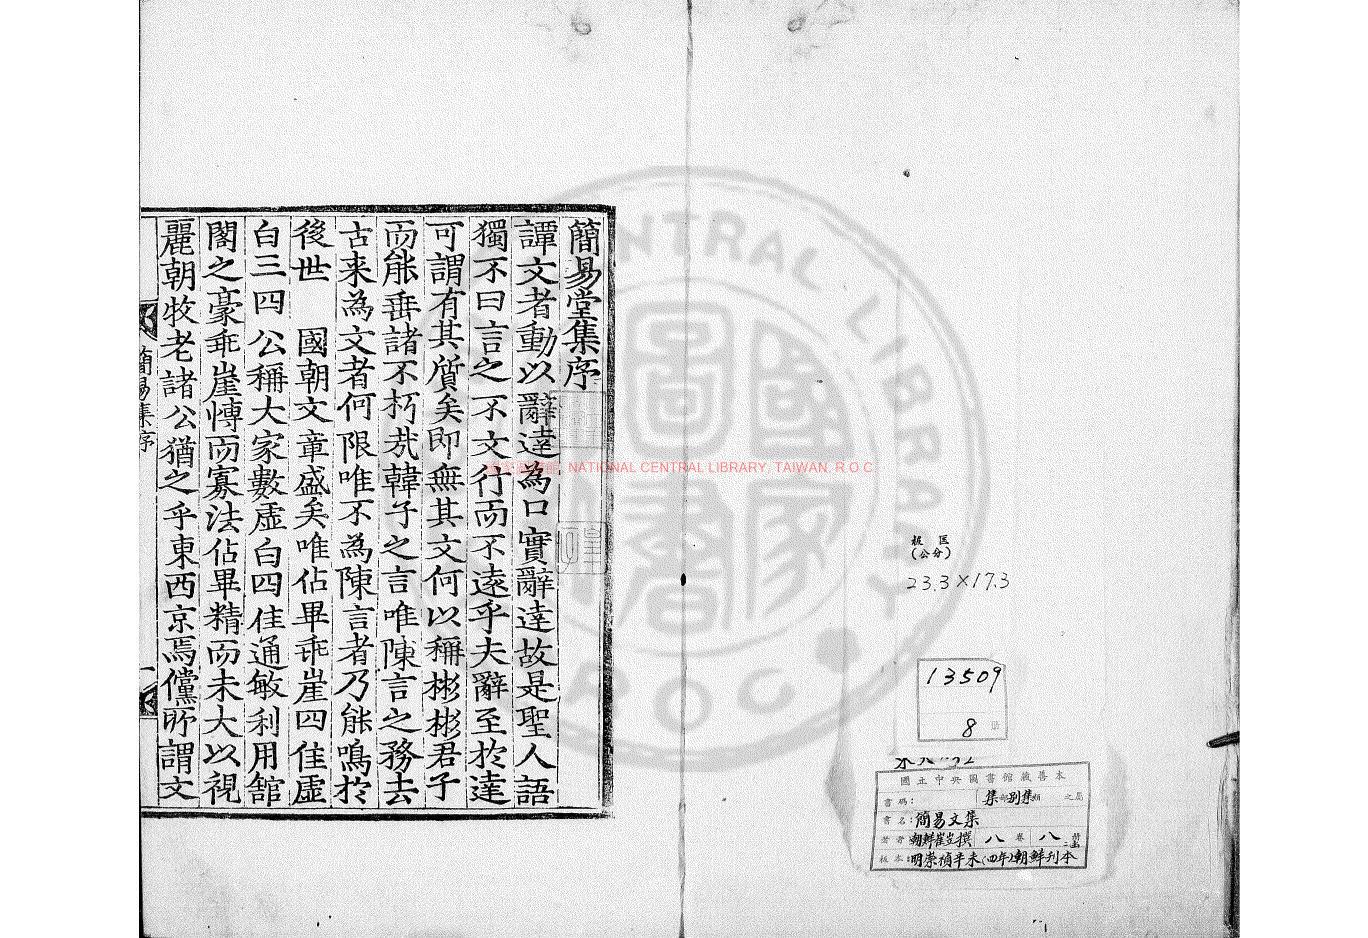 板匡
(公分)
23.3×17.3
13509
8
國立中央圖書館藏善本
書碼: 集部別集類 之屬
書名:簡易文集
著者 朝鮮崔岦撰 八卷 八冊
板本:明崇禎辛未(四年)朝鮮刊本
簡易堂集序
譚文者動以辭達為口實辭達故是聖人語
獨不曰言之不文行而不遠乎夫辭至於達
可謂有其質矣即無其文何以稱彬彬君子
而能垂諸不朽㦲韓子之言唯陳言之務去
古来為文者何限唯不為陳言者乃能鳴於
後世 國朝文章盛矣唯佔畢乖崖四佳虛
白三四公稱大家數虛白四佳通敏利用舘
閣之豪乖崖慱而寡法佔畢精而未大以視
麗朝牧老諸公猶之乎東西京焉儻所謂文
簡易集序 一
NATIONAL CENTRAL LIBRARY, TAIWAN, R O C
CENTRAL LIBRARY
R O C
國家圖書